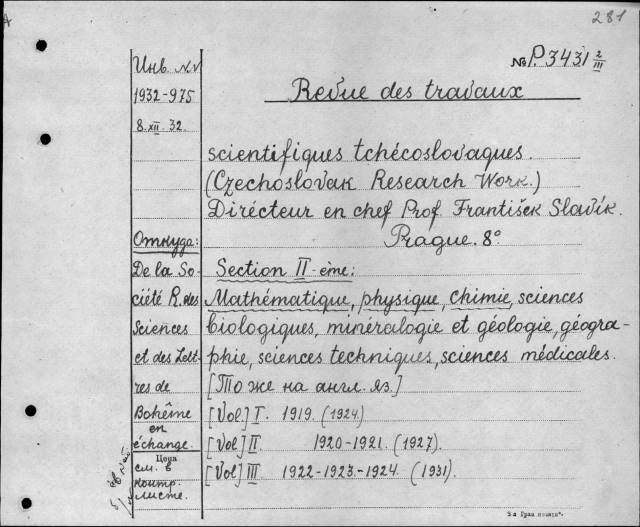 281
№ P.3431 2/III
Инв. №
1932-975
8.XII.32.
Revue des travaux
scientifiques tchécoslovaques.
(Czechoslovak Research Work.)
Dirécteur en chef Prof. František Slavík.
Prague. 8°
Откуда:
De la So-
ciété R. des
Sciences
et des Lett-
res de
Bohême
en
échange.
Цена
см. в
контр.
листе.
Section II-ème:
Mathématique, physique, chimie, sciences
biologiques, minéralogie et géologie, géogra-
phie, sciences techniques, sciences médicales.
[То же на англ. яз.]
[Vol] I. 1919. (1924)
[Vol] II 1920-1921. (1927).
[Vol] III 1922-1923-1924. (1931).